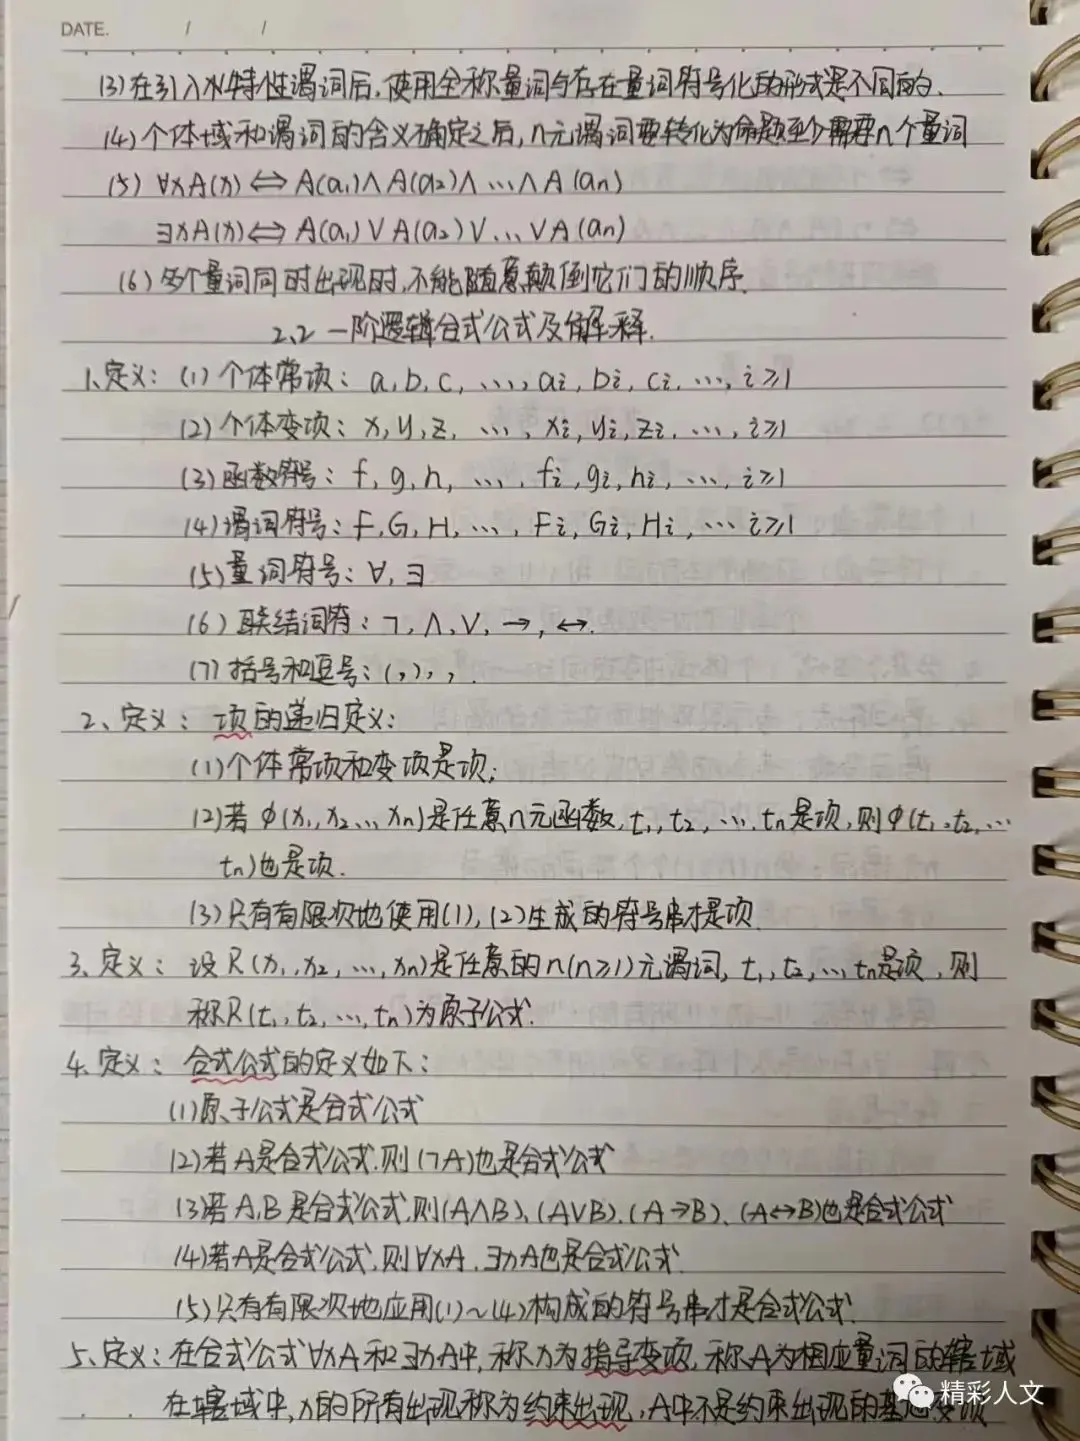 DATE. / /
(3)在引入水特性谓词后,使用全称量词与存在量词符号化的形式是不同的.
(4)个体域和谓词的含义确定之后,n元谓词要转化为命题至少需要n个量词
(5) ∀xA(x)⇔A(a₁)∧A(a₂)∧…∧A(an)
∃xA(x)⇔A(a₁)∨A(a₂)∨…∨A(an)
(6)多个量词同时出现时,不能随意颠倒它们的顺序.
2.2 一阶逻辑合式公式及解释.
1、定义: (1)个体常项: a,b,c,…,ai,bi,ci,…,i≥1
(2)个体变项: x,y,z,…,xi,yi,zi,…,i≥1
(3)函数符号: f,g,h,…,fi,gi,hi,…,i≥1
(4)谓词符号: F,G,H,…,Fi,Gi,Hi,…i≥1
(5)量词符号: ∀,∃
(6)联结词符: ¬,∧,∨,→,↔.
(7)括号和逗号: (,),,.
2、定义: 项的递归定义:
(1)个体常项和变项是项;
(2)若φ(x₁,x₂…,xn)是任意n元函数,t₁,t₂,…,tn是项,则φ(t₁,t₂,…
tn)也是项.
(3)只有有限次地使用(1),(2)生成的符号串才是项.
3、定义: 设R(x₁,x₂,…,xn)是任意的n(n≥1)元谓词,t₁,t₂,…tn是项,则
称R(t₁,t₂,…,tn)为原子公式.
4、定义: 合式公式的定义如下:
(1)原子公式是合式公式
(2)若A是合式公式,则(¬A)也是合式公式
(3)若A,B是合式公式,则(A∧B),(A∨B),(A→B),(A↔B)也是合式公式
(4)若A是合式公式,则∀xA,∃xA也是合式公式.
(5)只有有限次地应用(1)~(4)构成的符号串才是合式公式.
5、定义: 在合式公式∀xA和∃xA中,称x为指导变项,称A为相应量词的辖域
在辖域中,x的所有出现称为约束出现,A中不是约束出现的其他变项
精彩人文